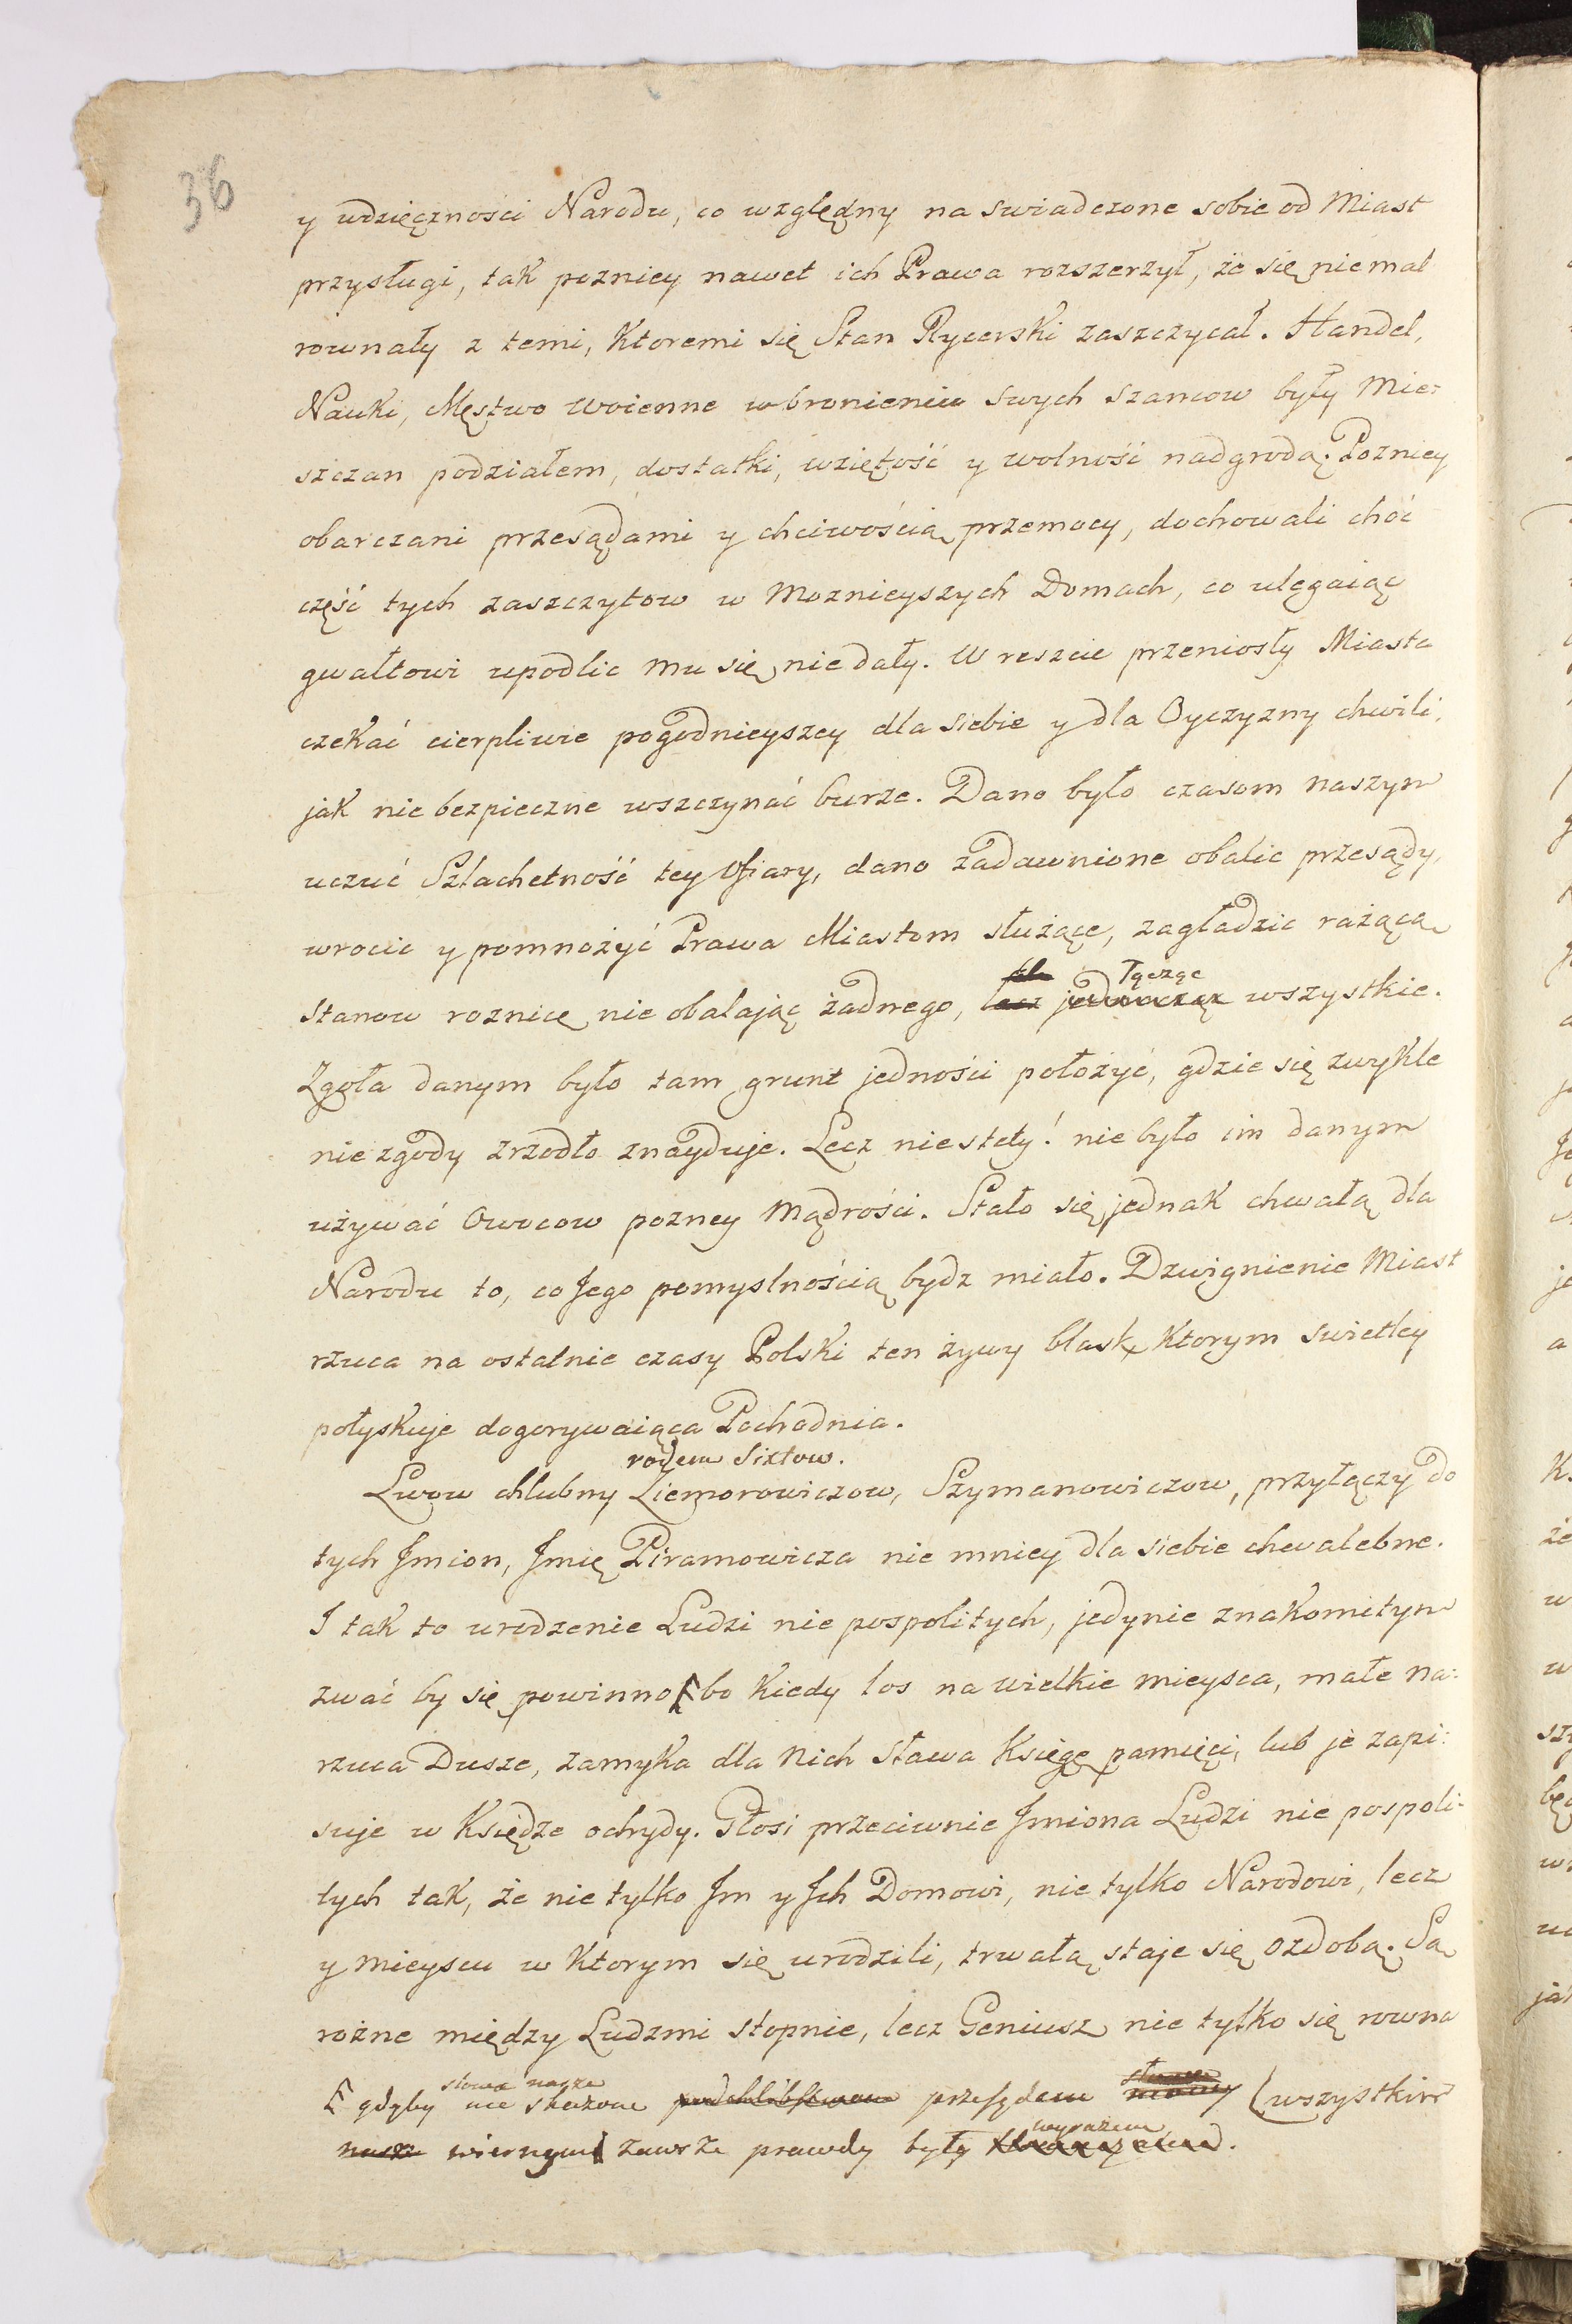 36
y wdzięczności Narodu, co względny na swiadczone sobie od Miast
przysługi, tak pozniey nawet ich Prawa rozszerzył, że się niemal
rownały z temi, Ktoremi się Stan Rycerski zaszczycał. Handel,
Nauki, Męstwo woienne w bronieniu swych szancow były Mie=
szczan podziałem, dostatki, wziętość y wolność nadgrodą. Pozniey
obarczani przesądami y chciwością przemocy, dochowali choć
część tych zaszczytow w Moznieyszych Domach, co ulegaiąc
gwałtowi upodlic mu się nie dały. W reszcie przeniosły Miasta
czekać cierpliwie pogodnieyszey dla siebie y dla Oyczyzny chwili,
jak niebezpieczne wszczynać burze. Dano było czasom naszym
uczuć Szlachetność tey Ofiary, dano zadawnione obalic przesądy,
wrocic y pomnożyć Prawa Miastom służące, zagładzic rażącą
łącząc
Stanow roznicę nie obalając żadnego, lecz wszystkie.
Zgoła danym było tam grunt jedności położyć, gdzie się zwykle
niezgody zrzodło znayduje. Lecz niestety! nie było im danym
używać Owocow pozney Mądrości. Stało się jednak chwałą dla
Narodu to, co Jego pomyslnością bydz miało. Dzwignienie Miast
rzuca na ostatnie czasy Polski ten żywy blask, Ktorym swietley
połyskuje dogorywaiąca Pochodnia.
rodem Sixtow.
Lwow chlubny Ziemorowiczow, Szymanowiczow, przyłączy do
tych Jmion, Jmię Piramowicza nie mniey dla siebie chwalebne.
I tak to urodzenie Ludzi nie pospolitych, jedynie znakomitym
zwać by się powinno bo Kiedy los na wielkie mieysca, małe na=
rzuca Dusze, zamyka dla Nich Sława Księgę pamięci, lub je zapi=
suje w Księdze ochydy. Głosi przeciwnie Jmiona Ludzi nie pospoli=
tych tak, że nie tylko Jm y Jch Domowi, nie tylko Narodowi, lecz
y mieyscu w Ktorym się urodzili, trwałą staje się ozdobą. Są
rożne między Ludzmi stopnie, lecz Geniusz nie tylko się rowna
słowa nasze
gdyby nie skażone przesądem (wszystkim
wyrazem
wiernym zawsze prawdy były